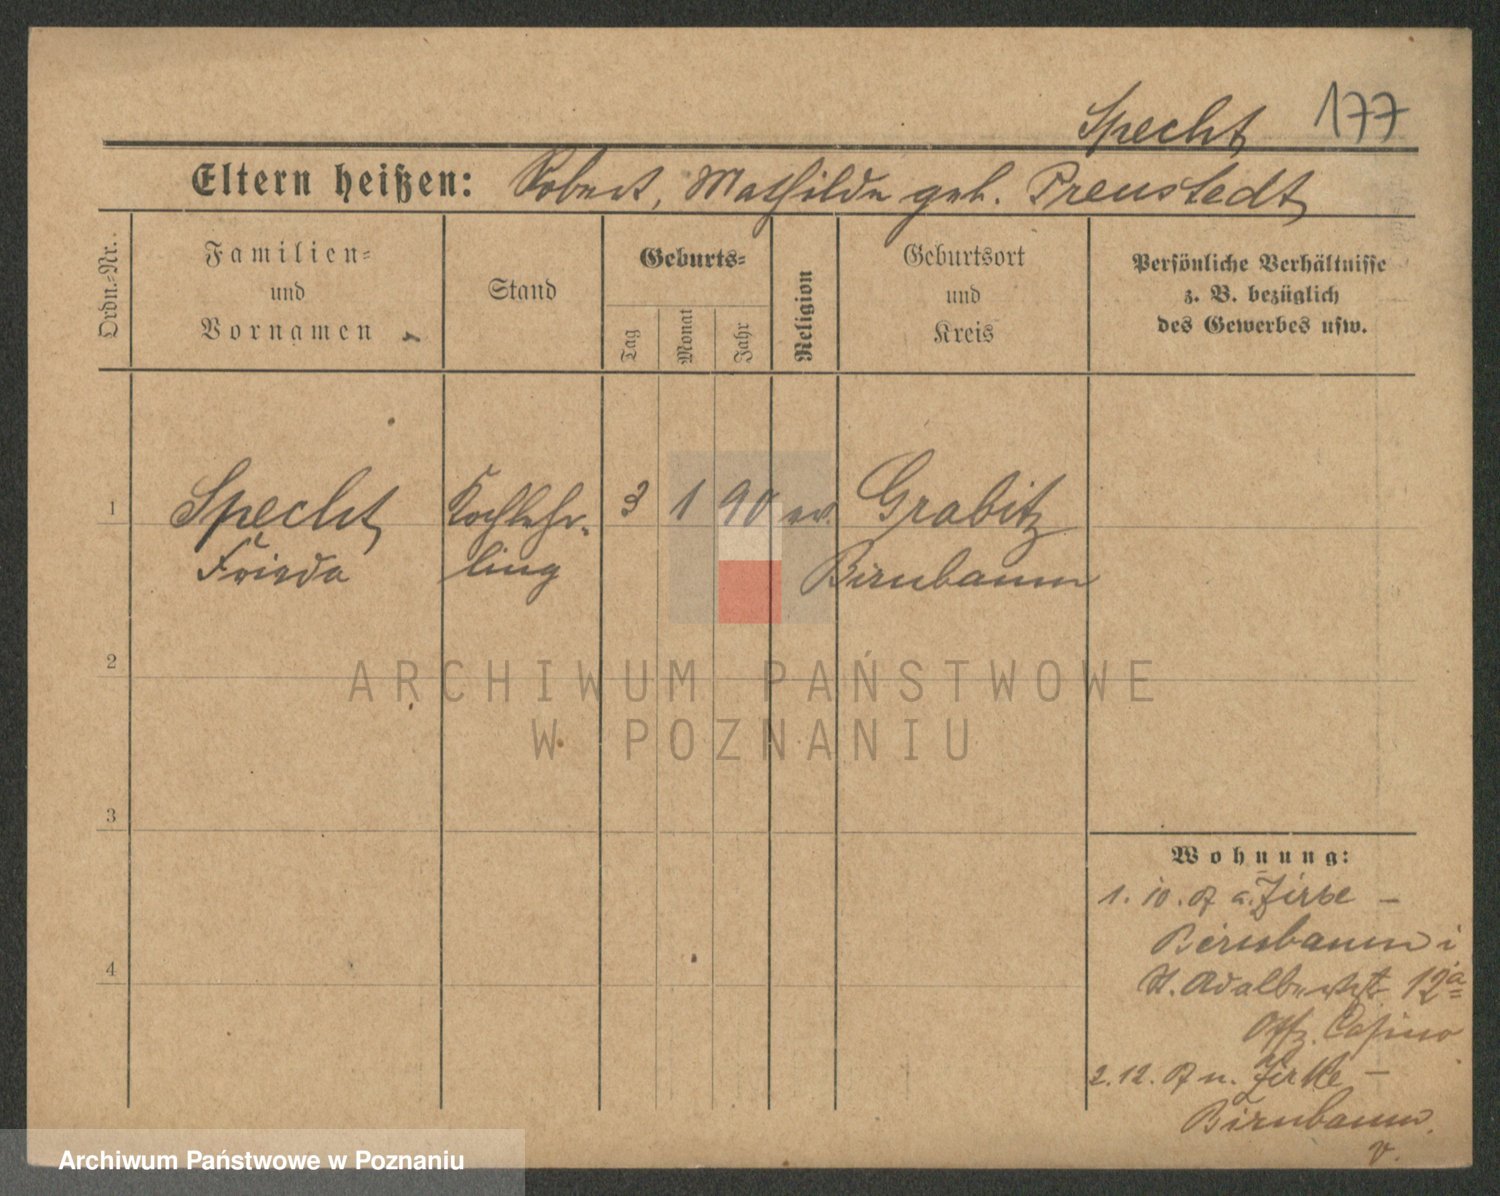 Specht 177
Eltern heißen: Robert, Mathilde geb. Preustedt
Ordn.-Nr.
Familien-
und
Vornamen
Stand
Geburts-
Tag
Monat
Jahr
Religion
Geburtsort
und
Kreis
Persönliche Verhältnisse
z. B. bezüglich
des Gewerbes usw.
1 Specht Kochlehr- 3 1 90 ev. Grabitz
Frieda ling Birnbaum
2
3
4
Wohnung:
1. 10. Zirke –
Birnbaum
St. Adalbertstr 12a
Offz. Casino
2. 12. n. Zirke –
Birnbaum.
ARCHIWUM PAŃSTWOWE
W POZNANIU
Archiwum Państwowe w Poznaniu